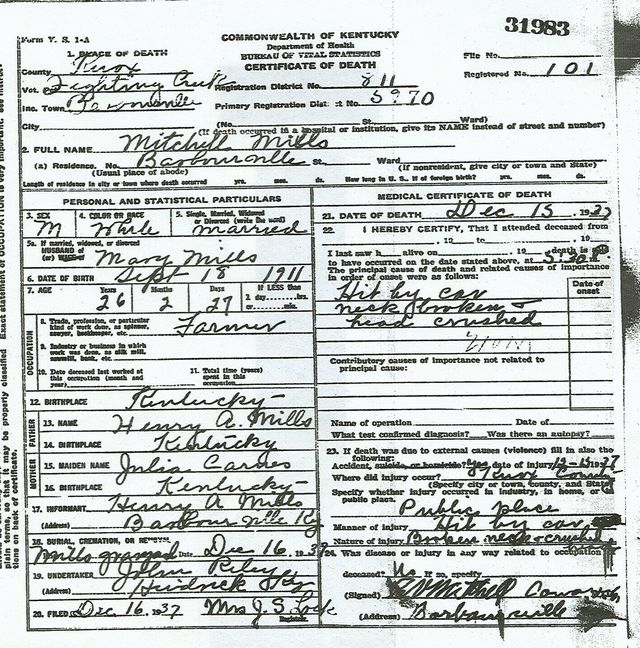 31983
Form V. S. 1-A
COMMONWEALTH OF KENTUCKY
Department of Health
BUREAU OF VITAL STATISTICS
CERTIFICATE OF DEATH
File No.
Registered No. 101
1. PLACE OF DEATH
County Knox
Vot. Fighting Creek Registration District No. 811
Inc. Town Barbourville Primary Registration District No. 5970
City (No. St. Ward)
(If death occurred in a hospital or institution, give its NAME instead of street and number)
2. FULL NAME Mitchell Mills
(a) Residence. No. Barbourville St. Ward
(Usual place of abode) (If nonresident, give city or town and State)
Length of residence in city or town where death occurred yrs. mos. ds. How long in U. S., if of foreign birth? yrs. mos. ds.
PERSONAL AND STATISTICAL PARTICULARS
3. SEX M
4. COLOR OR RACE White
5. Single, Married, Widowed or Divorced (write the word) married
5a. If married, widowed, or divorced
HUSBAND of
(or) WIFE of Mary Mills
6. DATE OF BIRTH Sept 18 1911
7. AGE Years 26 Months 2 Days 27 If LESS than 1 day hrs. or min.
OCCUPATION
8. Trade, profession, or particular kind of work done, as spinner, sawyer, bookkeeper, etc. Farmer
9. Industry or business in which work was done, as silk mill, sawmill, bank, etc.
10. Date deceased last worked at this occupation (month and year)
11. Total time (years) spent in this occupation
12. BIRTHPLACE Kentucky
FATHER
13. NAME Henry A. Mills
14. BIRTHPLACE Kentucky
MOTHER
15. MAIDEN NAME Julia
16. BIRTHPLACE Kentucky
17. INFORMANT Henry A Mills
(Address) Barbourville Ky
18. BURIAL, CREMATION, OR REMOVAL
Mills graveyard Date Dec 16, 1937
19. UNDERTAKER John Riley
(Address) Ky
20. FILED Dec 16, 1937 Mrs J. S. Lock
Registrar.
MEDICAL CERTIFICATE OF DEATH
21. DATE OF DEATH Dec 15, 1937
22. I HEREBY CERTIFY, That I attended deceased from
, 19 to , 19
I last saw h alive on , 19 death is said
to have occurred on the date stated above, at 5:30
The principal cause of death and related causes of importance in order of onset were as follows:
Date of onset
Hit by car
neck broken &
head crushed
Contributory causes of importance not related to principal cause:
Name of operation Date of
What test confirmed diagnosis? Was there an autopsy?
23. If death was due to external causes (violence) fill in also the following:
Accident, suicide, or homicide? yes date of injury 12-15 1937
Where did injury occur? Knox County
(Specify city or town, county, and State)
Specify whether injury occurred in industry, in home, or public place.
Public place
Manner of injury Hit by car
Nature of injury Broken neck & crushed
24. Was disease or injury in any way related to occupation
deceased? No If so, specify
(Signed)
(Address) Barbourville